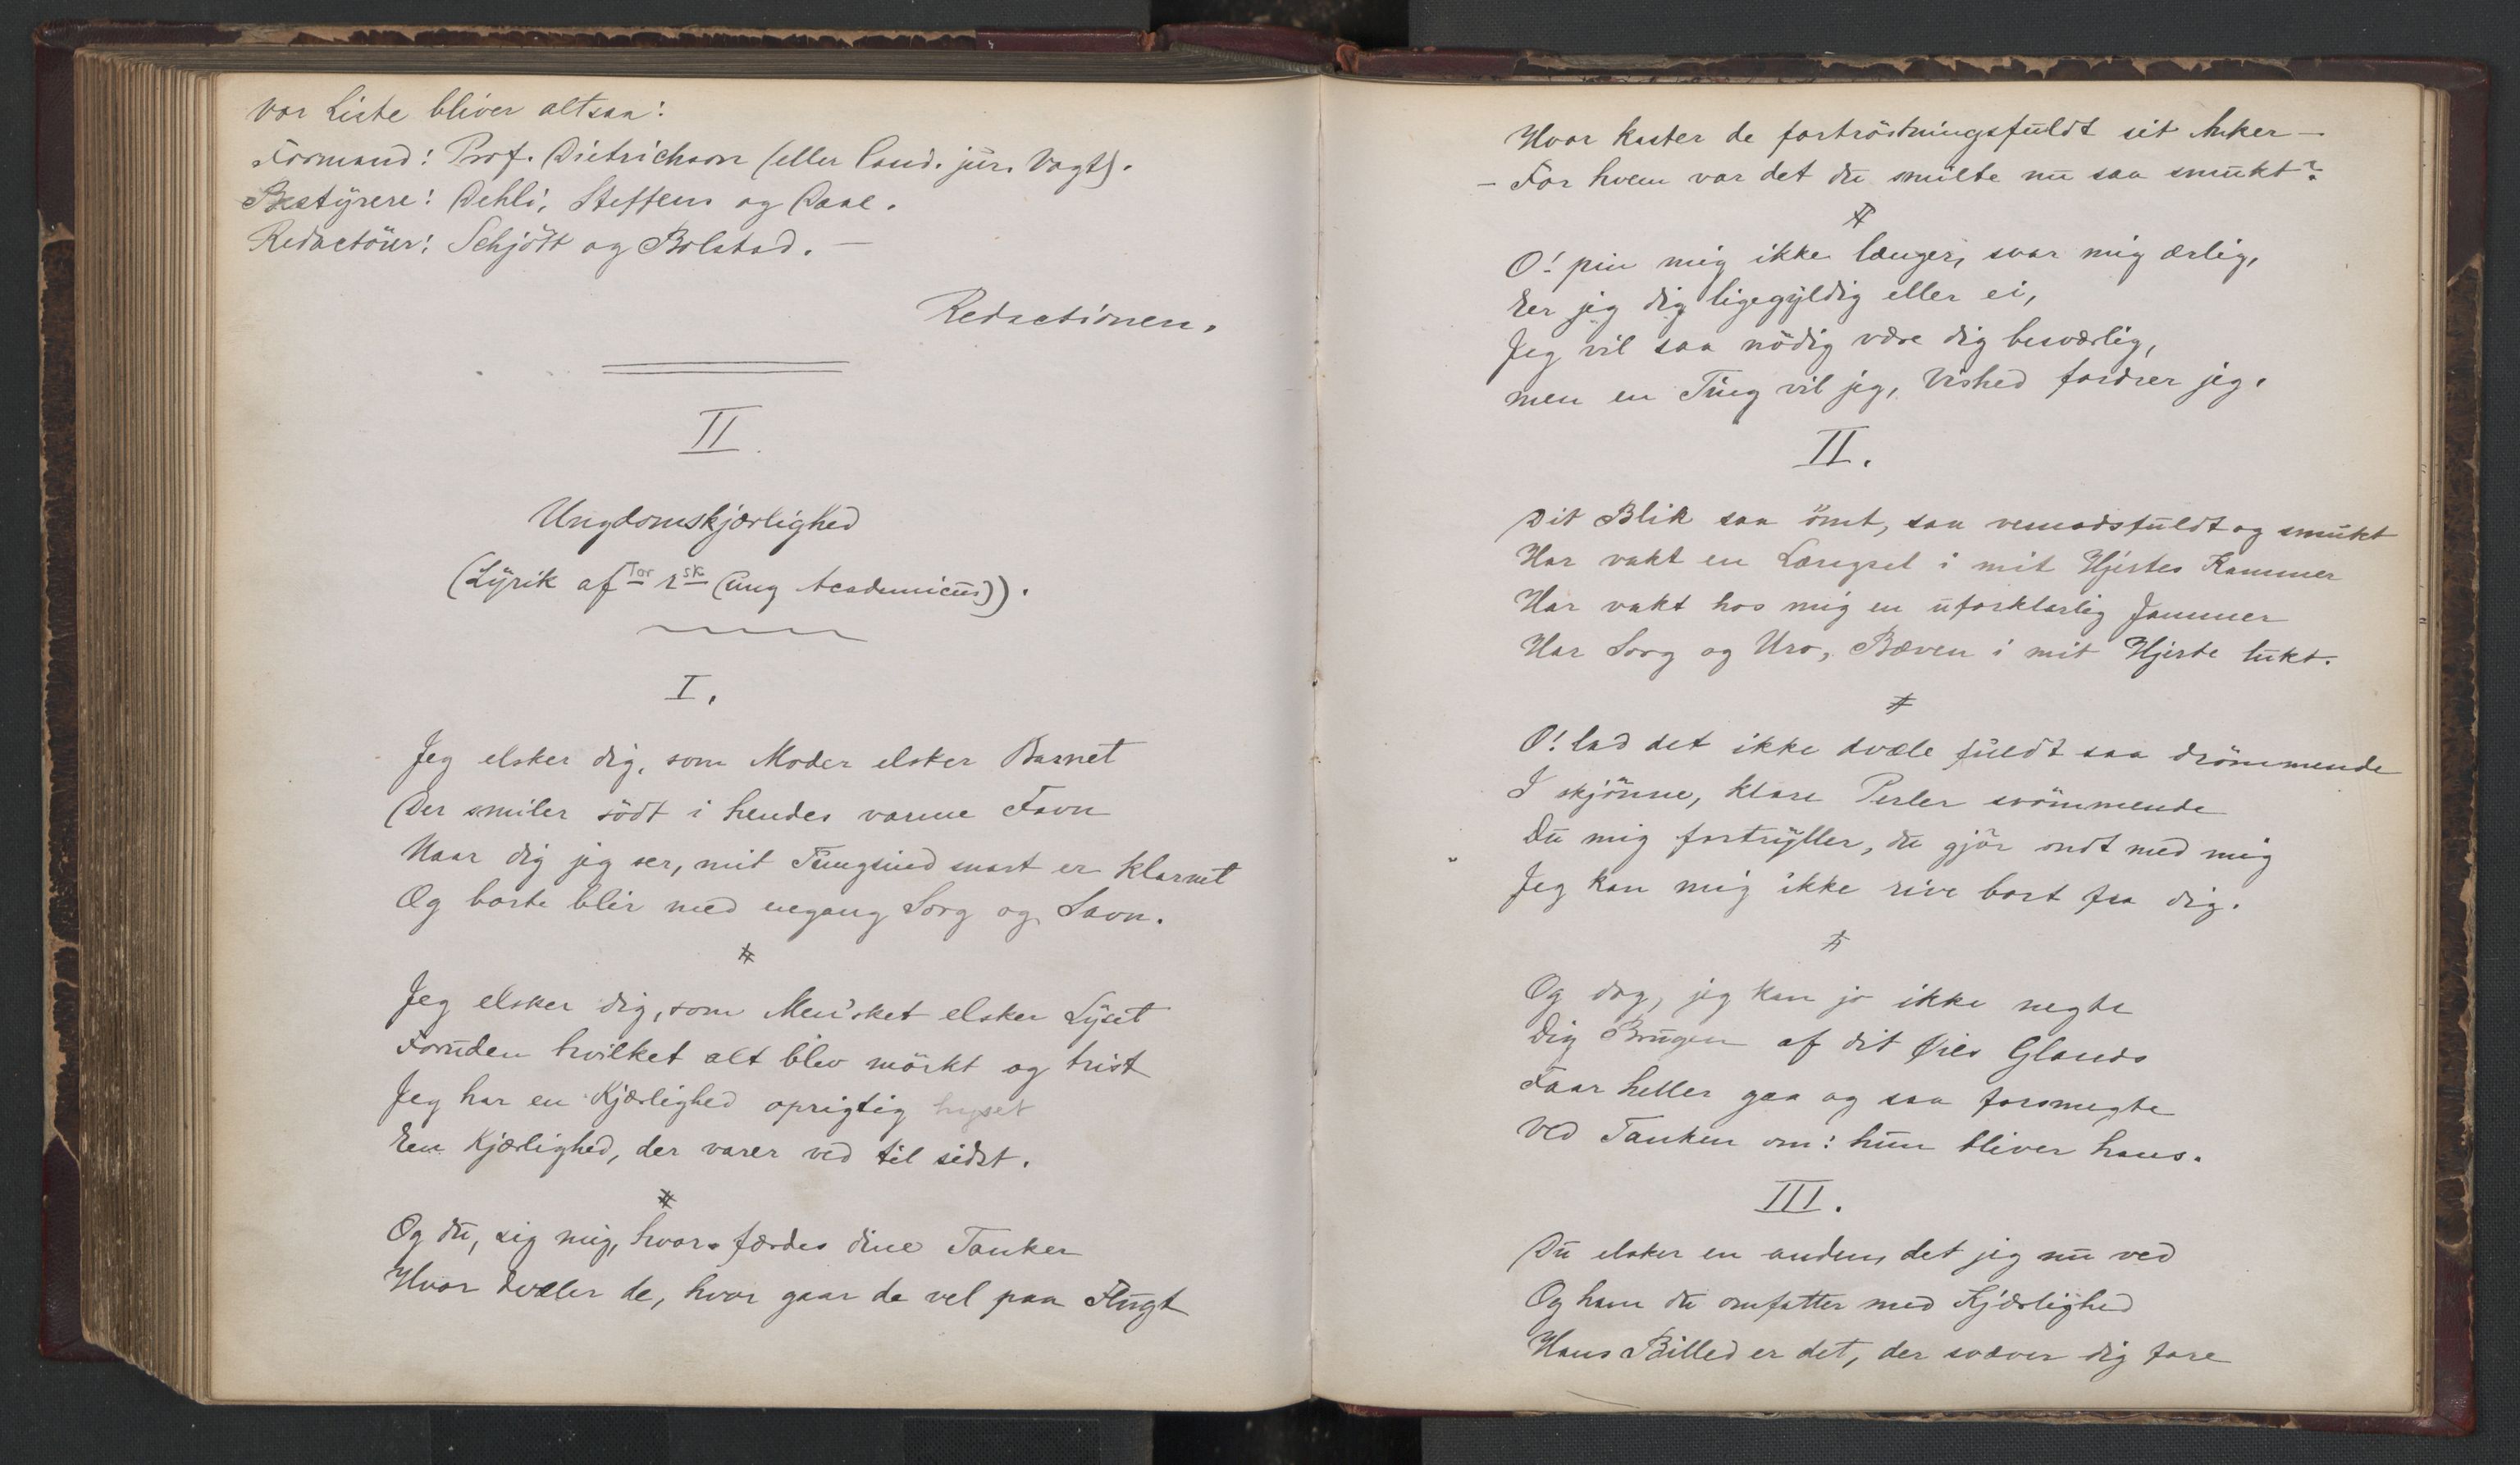 Vor Liste bliver altsaa:
Formand: Prof. Dietrichson (eller Cand. jur. Vogt).
Bestyrere: Dehli, Steffens og Daae.
Redactöur: Schjött og Bolstad. —
Redactionen.
II.
Ungdomskjærlighed
(Lyrik af Tor rsk (ung Academicus)).
I.
Jeg elsker dig, som Moder elsker Barnet
Der smiler södt i hendes varme Favn
Naar dig jeg ser, mit Tungsind snart er klarnet
Og borte blir med engang Sorg og Savn.
Jeg elsker dig, som Men'sket elsker Lyset
Foruden hvilket alt blev mörkt og trist
Jeg har en Kjærlighed oprigtig hyset
Een Kjærlighed, der varer ved til sidst.
Og du, sig mig, hvor færdes dine Tanker
Hvor dvæler de, hvor gaar de vel paa Flugt
Hvor kaster de fortröstningsfuldt sit Anker —
— For hvem var det du smilte nu saa smukt?
O! pin mig ikke længer, svar mig ærlig,
Eer jeg dig ligegyldig eller ei,
Jeg vil saa nödig være dig besværlig,
men en Ting vil jeg, Vished fordrer jeg.
II.
Dit Blik saa ömt, saa vemodsfuldt og smukt
Har vakt en Længsel i mit Hjertes Kammer
Har vakt hos mig en uforklarlig Jammer
Har Sorg og Uro, Bæven i mit Hjerte lukt.
O! lad det ikke dvæle fuldt saa drömmende
I skjönne, klare Perler svömmende
Du mig fortryller, du gjör ondt med mig
Jeg kan mig ikke rive bort fra dig.
Og dog, jeg kan jo ikke negte
Dig Brugen af dit Øies Glands
Faar heller gaa og saa forsmegte
Ved Tanken om: hun bliver hans.
III.
Du elsker en anden, det jeg nu ved
Og ham du omfatter med Kjærlighed
Hans Billed er det, der svæver dig fore